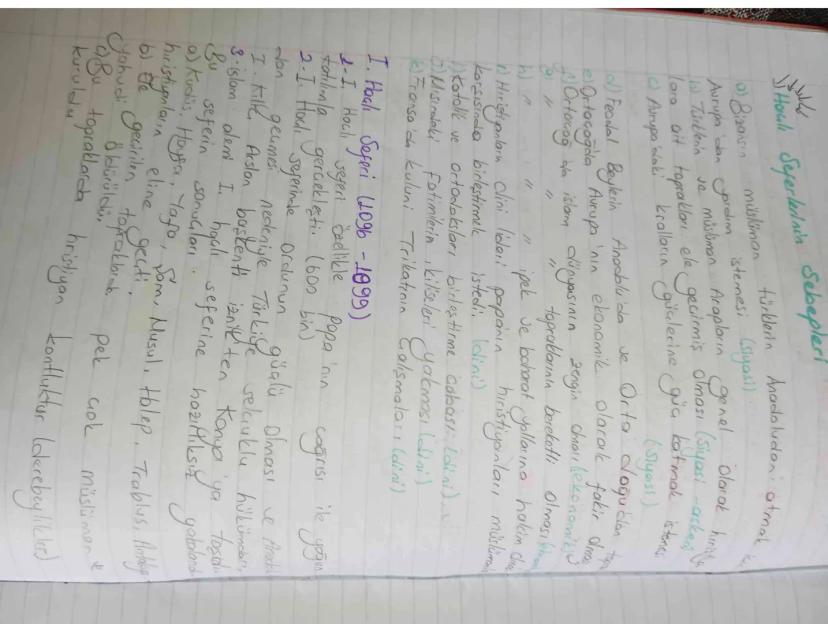 Haçlı Seferlerinin Sebepleri
a) Bizansın müslüman türklerin Anadoludan atmak
Avrupa'dan yardım istemesi (siyasi)
b) Türklerin ve müslüman Arapların genel olarak
lara ait toprakları ele geçirmiş olması (Siyasi - askeri)
c) Avrupa'daki kralların güçlerine güç katmak istemesi
(Siyasi)
d) Feodal Beylerin Anadolu'da ve Orta doğu'dan
e) Ortaçağda Avrupa'nın ekonomik olarak fakir olması
f) Ortaçağ'da islam dünyasının zengin olması (ekonomik)
g) " " " " topraklarının bereketli olması
h) " " " " ipek ve baharat yollarına hakim
ı) Hıristiyanların dini lideri papa'nın hıristiyanları müslüman
karşısında birleştirmek istedi. (dini)
i) Katolik ve ortodoksları birleştirme çabası. (dini)
j) Mısırdaki Fatimilerin kiliseleri yakması (dini)
k) Fransa'da kuluni Trikatının Çalışmaları (dini)
I. Haçlı Seferi (1096 - 1099)
1- I. Haçlı seferi özellikle papa'nın çağrısı ile yoğun
katılımla gerçekleşti. (600 bin)
2- I. Haçlı seferinde ordunun güçlü olması ve
dan geçmesi nedeniyle Türkiye selçuklu hükümdarı
I. kılıç Arslan başkenti iznik'ten Konya'ya taşıdı
3- islam alemi I. haçlı seferine hazırlıksız yakalandı
Bu seferin sonuçları:
a) Kudüs, Hayfa, Yafa, Şam, Musul, Halep, Trablus, Antakya
hıristiyanların eline geçti.
b) Ele geçirilen topraklarda pek çok müslüman ve
yahudi öldürüldü.
c) Bu topraklarda hıristiyan kontluklar (derebeylikler)
kuruldu